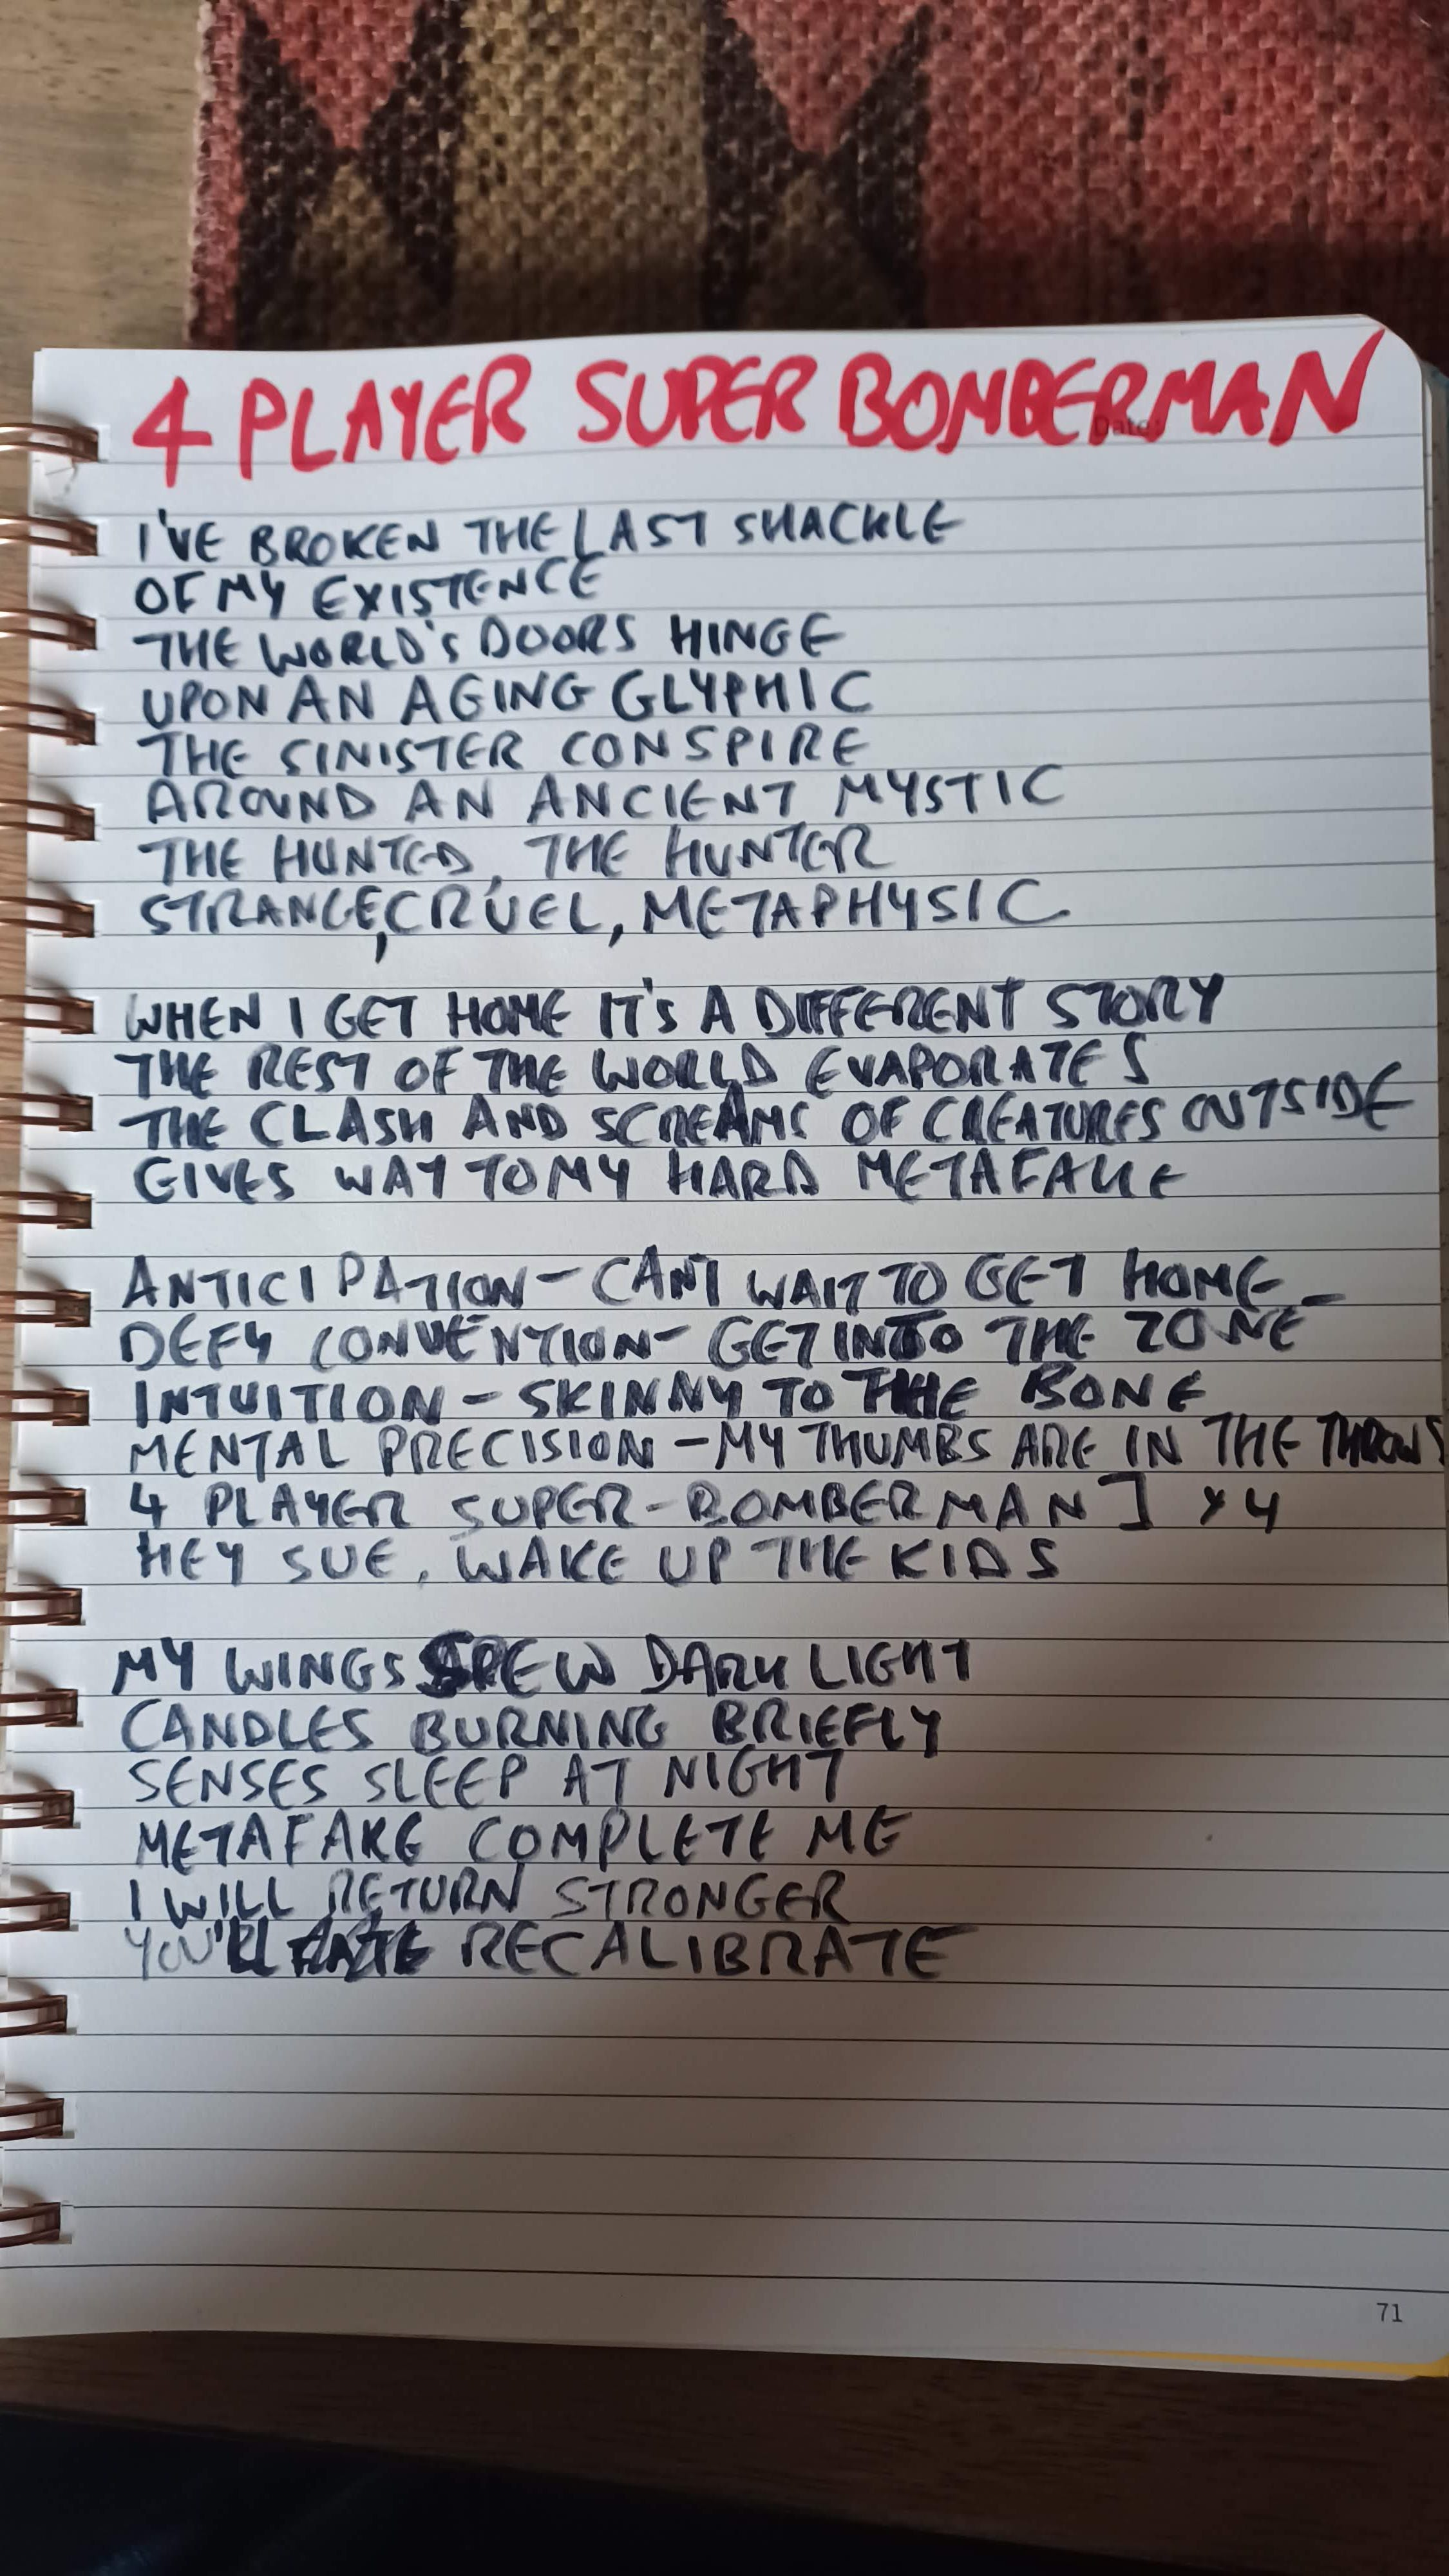 4 PLAYER SUPER BOMBERMAN
Date:
I'VE BROKEN THE LAST SHACKLE
OF MY EXISTENCE
THE WORLD'S DOORS HINGE
UPON AN AGING GLYPHIC
THE SINISTER CONSPIRE
AROUND AN ANCIENT MYSTIC
THE HUNTED, THE HUNTER
STRANGE, CRUEL, METAPHYSIC
WHEN I GET HOME IT'S A DIFFERENT STORY
THE REST OF THE WORLD EVAPORATES
THE CLASH AND SCREAMS OF CREATURES OUTSIDE
GIVES WAY TO MY HARD METAFAKE
ANTICIPATION - CAN'T WAIT TO GET HOME
DEFY CONVENTION - GET INTO THE ZONE
INTUITION - SKINNY TO THE BONE
MENTAL PRECISION - MY THUMBS ARE IN THE THROWS
4 PLAYER SUPER-BOMBERMAN ] x4
HEY SUE, WAKE UP THE KIDS
MY WINGS SPEW DARK LIGHT
CANDLES BURNING BRIEFLY
SENSES SLEEP AT NIGHT
METAFAKE COMPLETE ME
I WILL RETURN STRONGER
YOU'LL RECALIBRATE
71